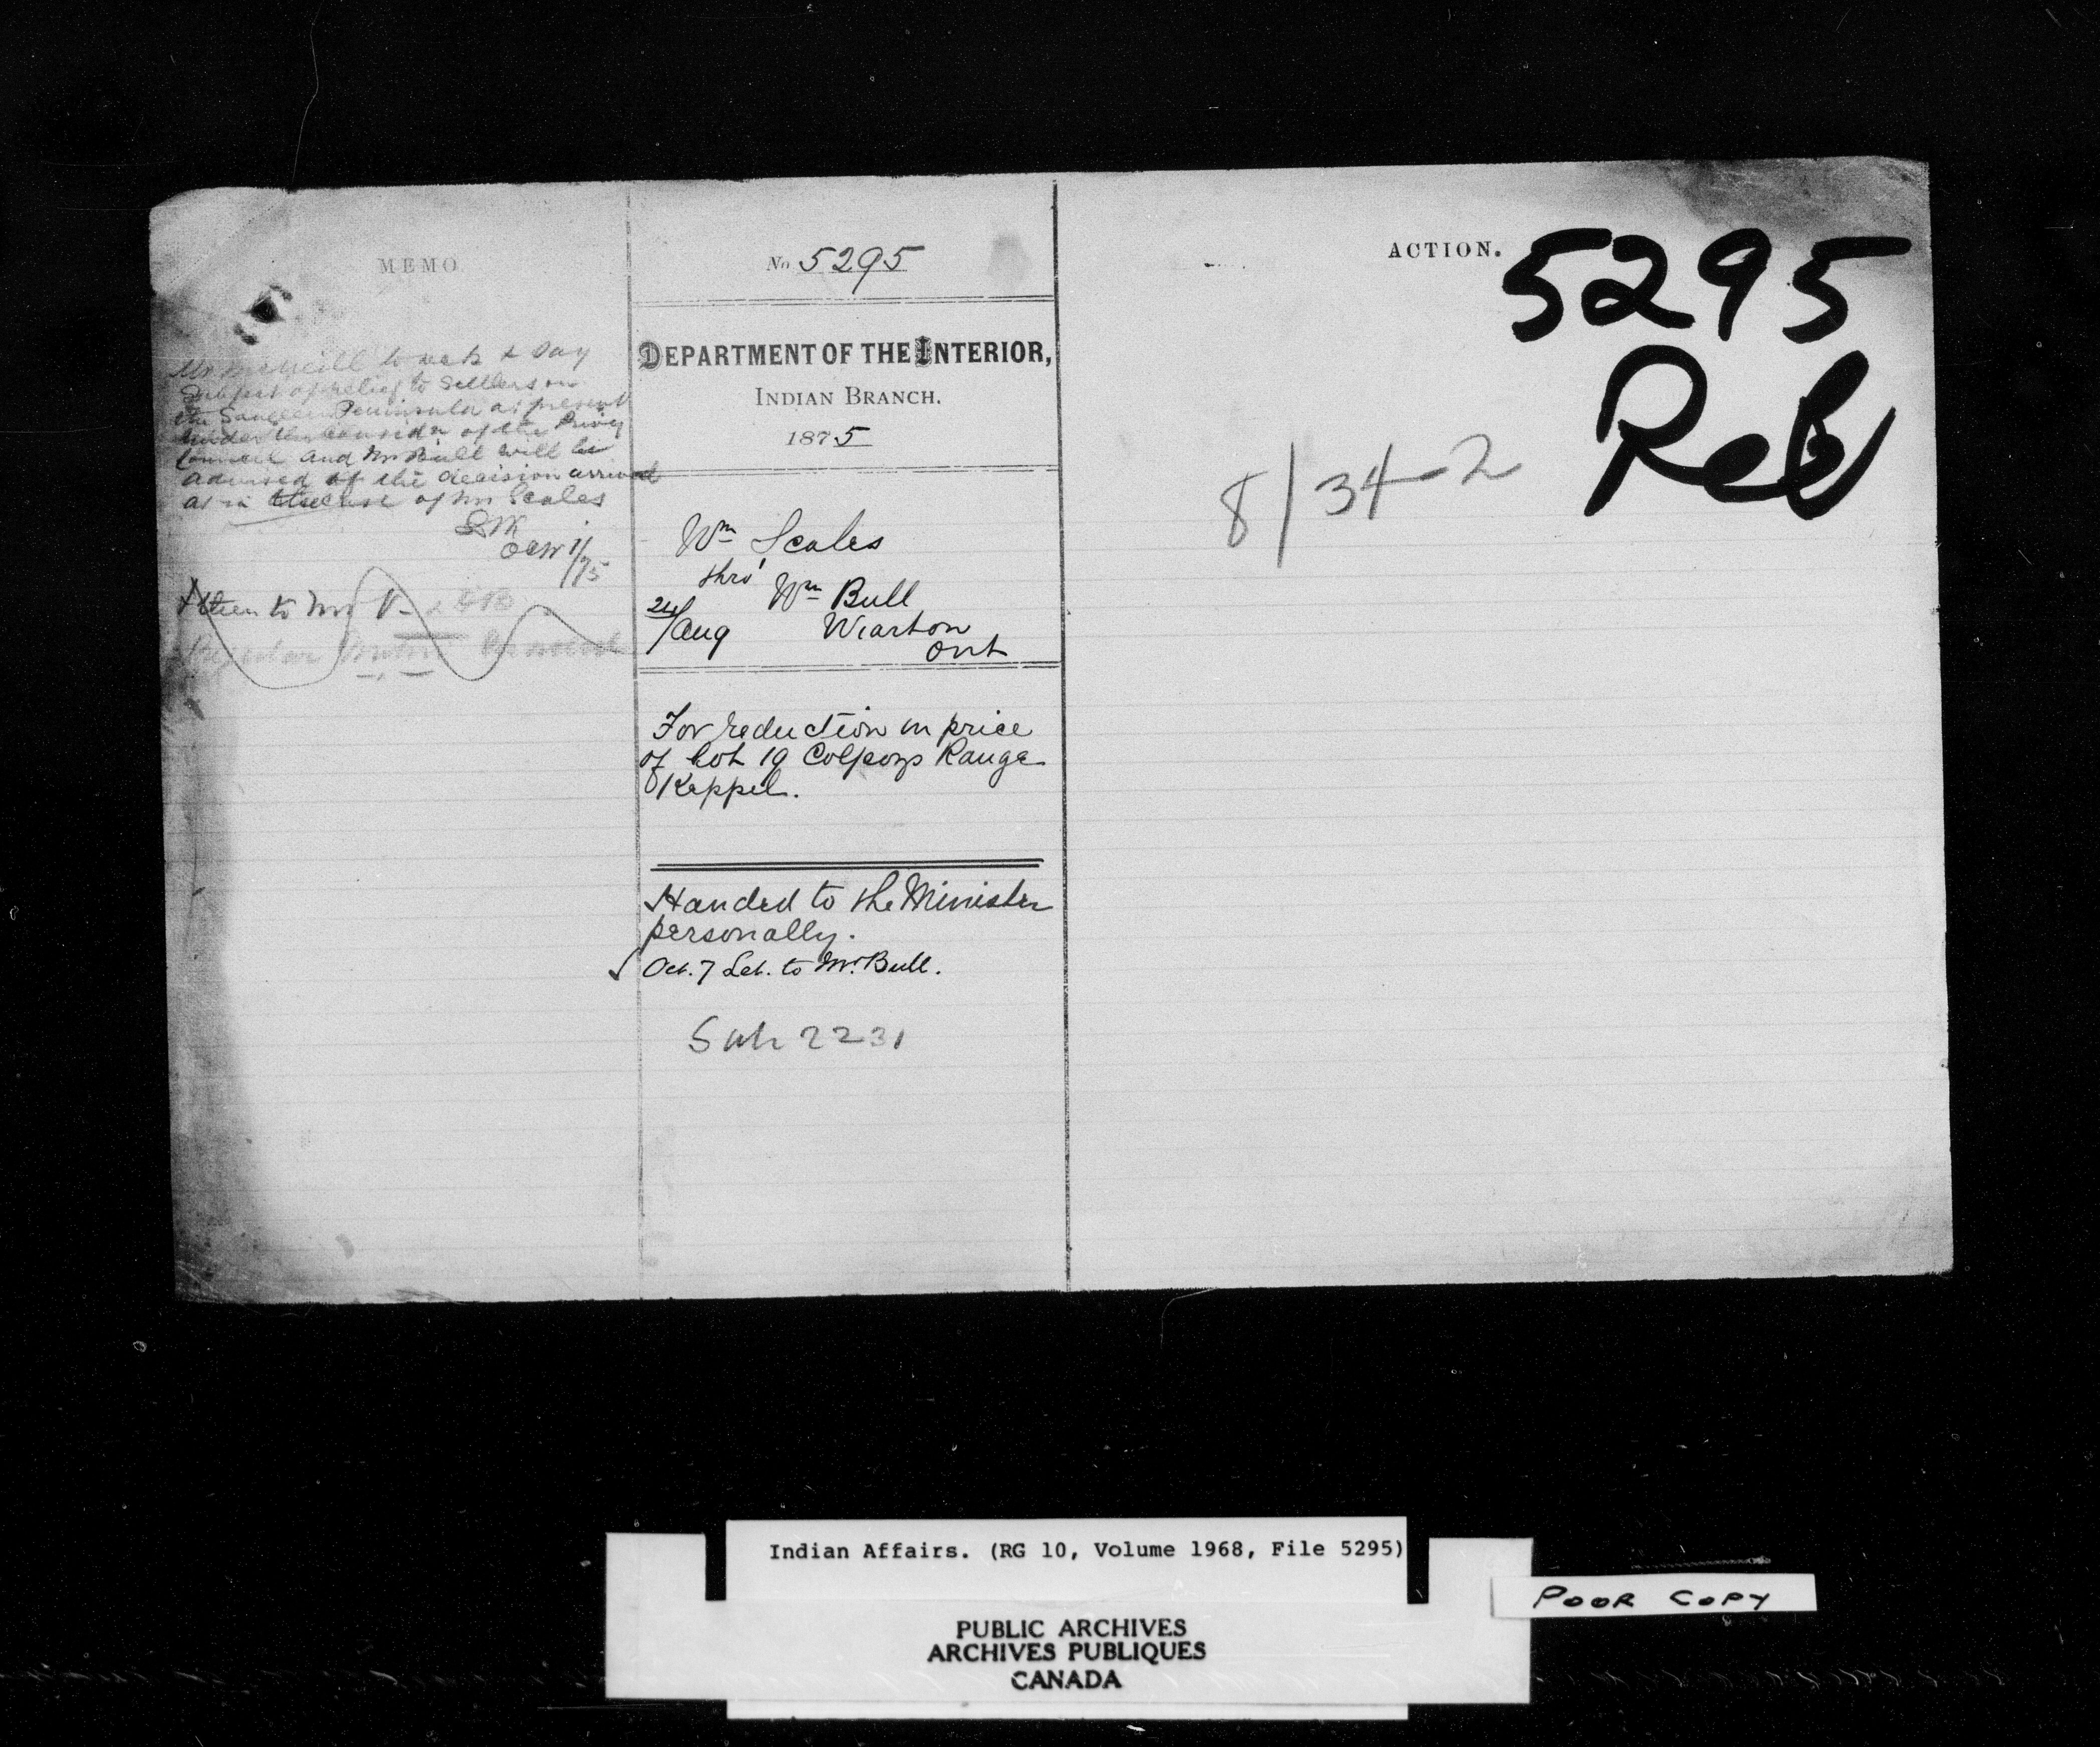 MEMO
Mr McNeill to ack & say
Subject of relief to Settlers on
the Saugeen Peninsula at present
under the considn of the Privy
Council and Mr Bull will be
advised of the decision arrived
at in the case of Mr Scales
Oct 1/75
then to Mr V.
Regular
No 5295
DEPARTMENT OF THE INTERIOR,
INDIAN BRANCH.
1875
Wm Scales
thro'
Wm Bull
24/Aug Wiarton
Ont
For reduction in price
of Lot 19 Colpoys Range
Keppel.
Handed to the Minister
personally.
✓ Oct. 7 Let. to Mr. Bull.
Sub 2231
ACTION.
5295
Reb
8/34-2
Indian Affairs. (RG 10, Volume 1968, File 5295)
PUBLIC ARCHIVES
ARCHIVES PUBLIQUES
CANADA
POOR COPY